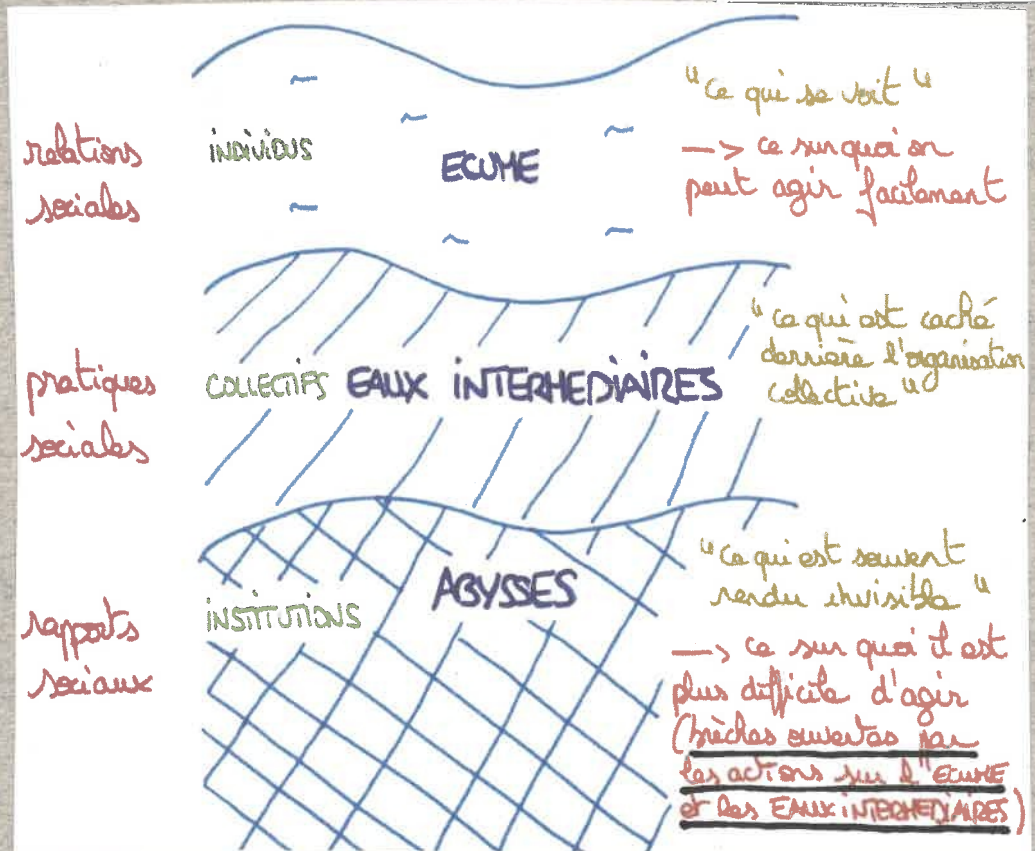 relations
sociales
INDIVIDUS
ECUME
"ce qui se voit"
—> ce sur quoi on
peut agir facilement
pratiques
sociales
COLLECTIFS
EAUX INTERMEDIAIRES
"ce qui est caché
derrière l'organisation
collective"
rapports
sociaux
INSTITUTIONS
ABYSSES
"ce qui est souvent
rendu invisible"
—> ce sur quoi il est
plus difficile d'agir
(brèches ouvertes par
les actions sur l'"ECUME
et les EAUX INTERMEDIAIRES)